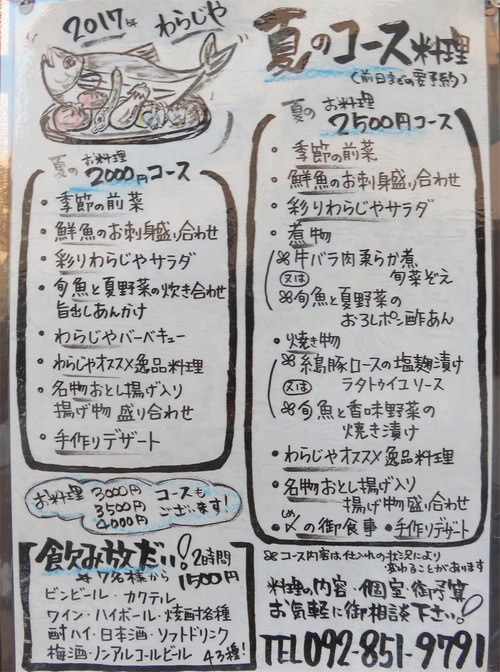 2017年 わらじや
夏のコース料理
(前日までの要予約)
夏の お料理
2000円コース
・季節の前菜
・鮮魚のお刺身盛り合わせ
・彩りわらじやサラダ
・旬魚と夏野菜の炊き合わせ
旨出しあんかけ
・わらじやバーベキュー
・わらじやオススメ逸品料理
・名物おとし揚げ入り
揚げ物 盛り合わせ
・手作りデザート
夏の お料理
2500円コース
・季節の前菜
・鮮魚のお刺身盛り合わせ
・彩りわらじやサラダ
・煮物
※牛バラ肉柔らか煮
又は 旬菜ぞえ
※旬魚と夏野菜の
おろしポン酢あん
・焼き物
※糸島豚ロースの塩麹漬け
又は ラタトゥイユソース
※旬魚と香味野菜の
焼き漬け
・わらじやオススメ逸品料理
・名物おとし揚げ入り
揚げ物盛り合わせ
・〆(しめ)の御食事 ・手作りデザート
お料理 3000円 3500円 4000円 コースも
ございます!
飲み放だい! 2時間
※7名様から 1500円
ビンビール・カクテル
ワイン・ハイボール・焼酎各種
酎ハイ・日本酒・ソフトドリンク
梅酒・ノンアルコールビール 43種!
※コース内容は仕入れの状況により
変わることがあります
料理の内容・個室・御予算
お気軽に御相談下さい!
TEL092-851-9791